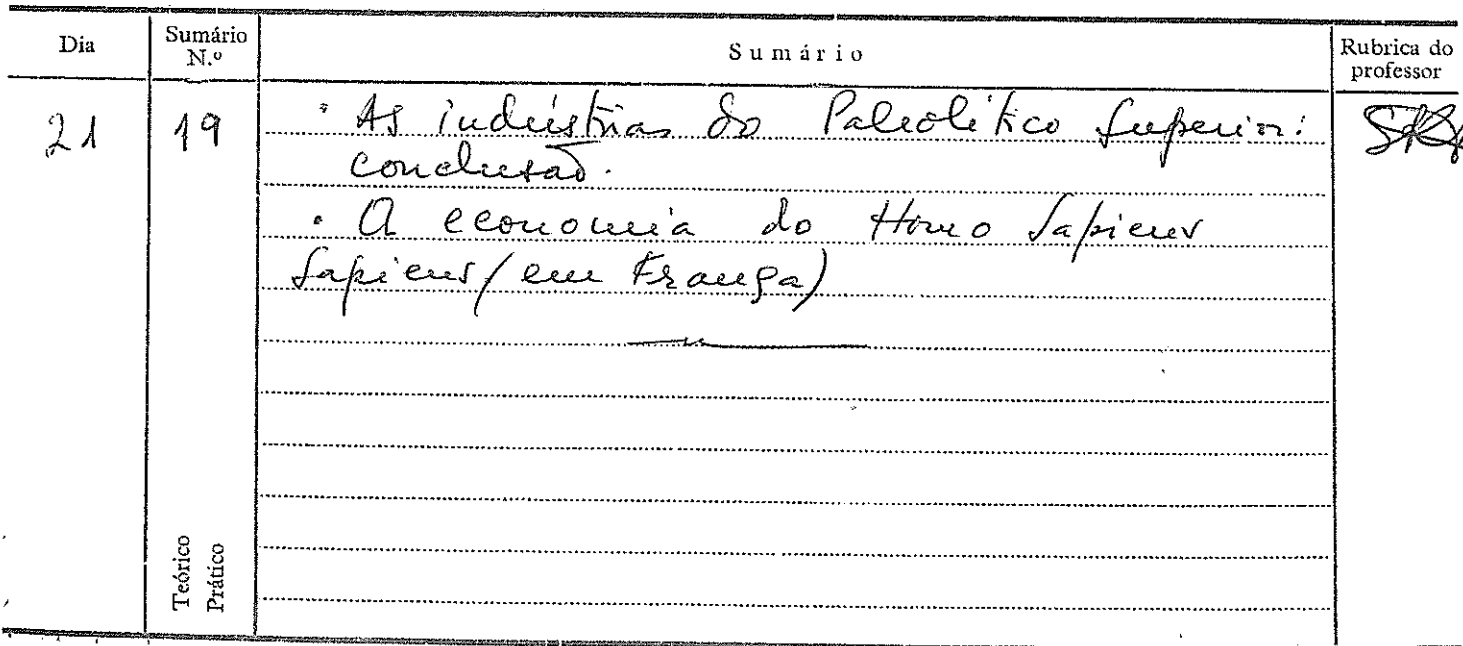 Dia
Sumário N.º
Sumário
Rubrica do professor
21
19
• As indústrias do Paleolítico Superior:
conclusão.
• A economia do Homo Sapiens
Sapiens (em França)
Teórico
Prático